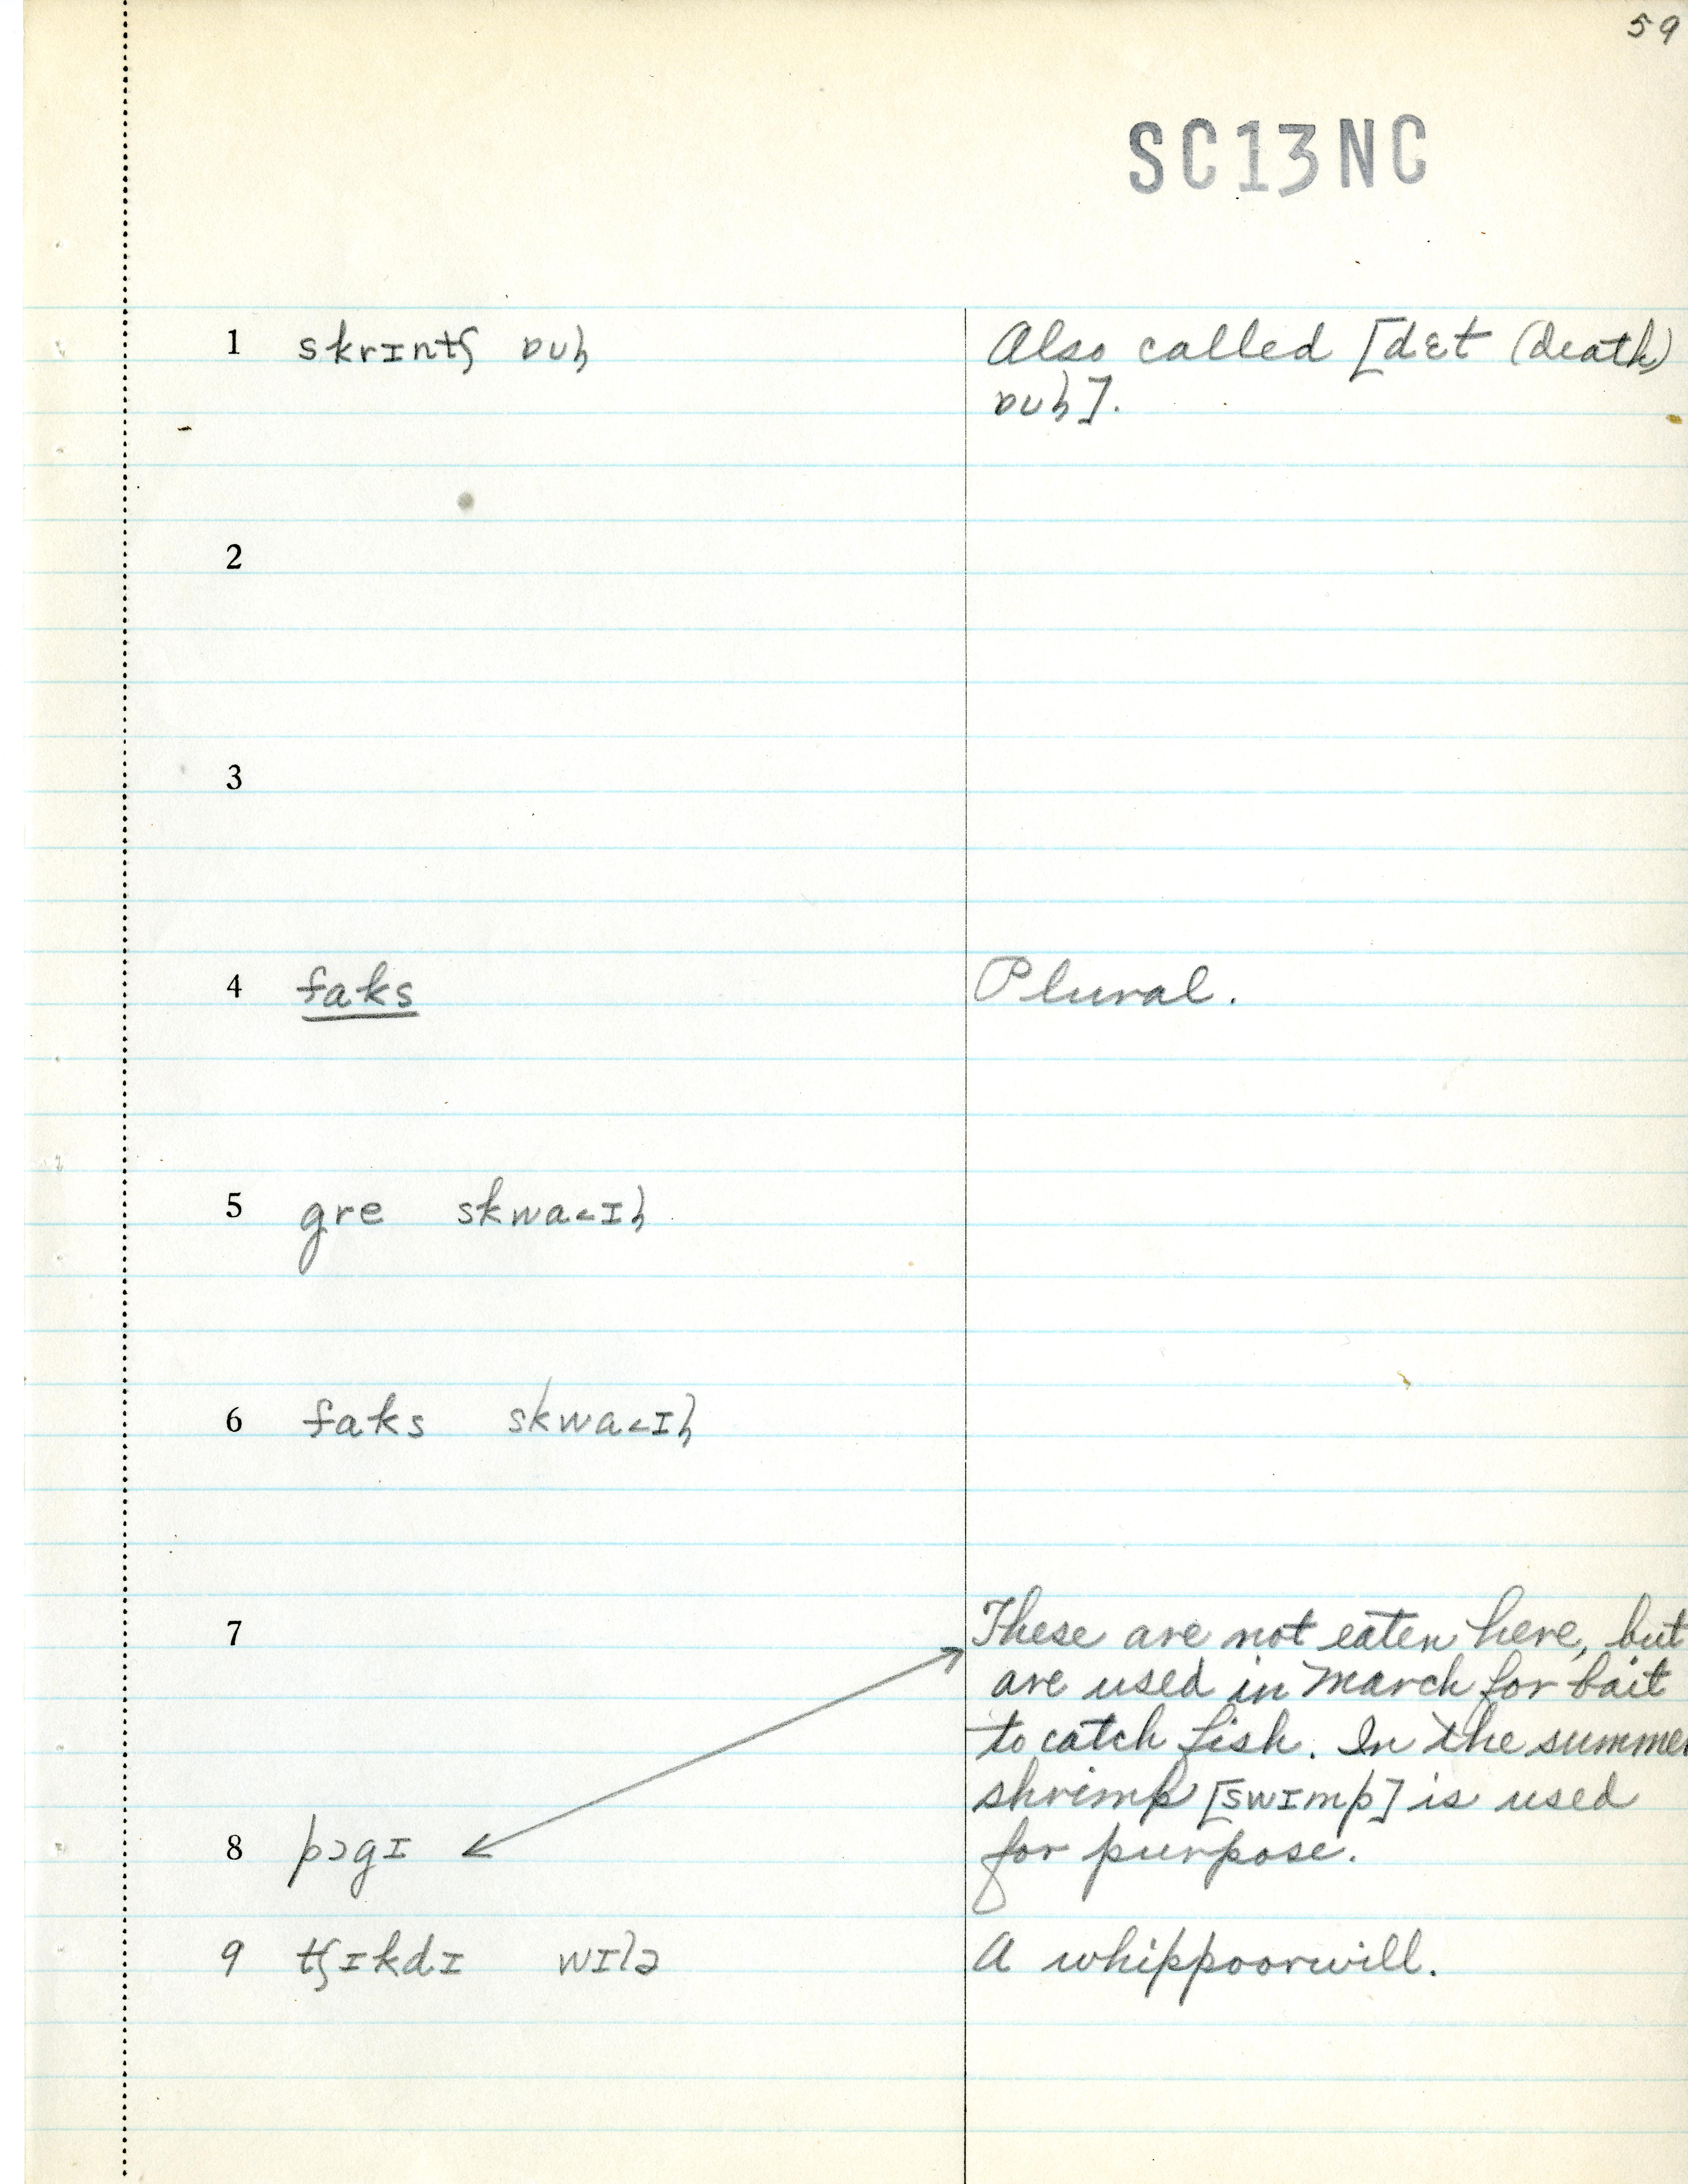 59
SC13NC
1 skrɪntʃ ɒʊɦ Also called [dɛt (death)
ɒʊɦ].
2
3
4 faks Plural.
5 gre skwa˂ɪɦ
6 faks skwa˂ɪɦ
7 These are not eaten here, but
are used in March for bait
to catch fish. In the summer
shrimp [swɪmp] is used
8 pɔgɪ for purpose.
9 tʃɪkdɪ wɪlə A whippoorwill.